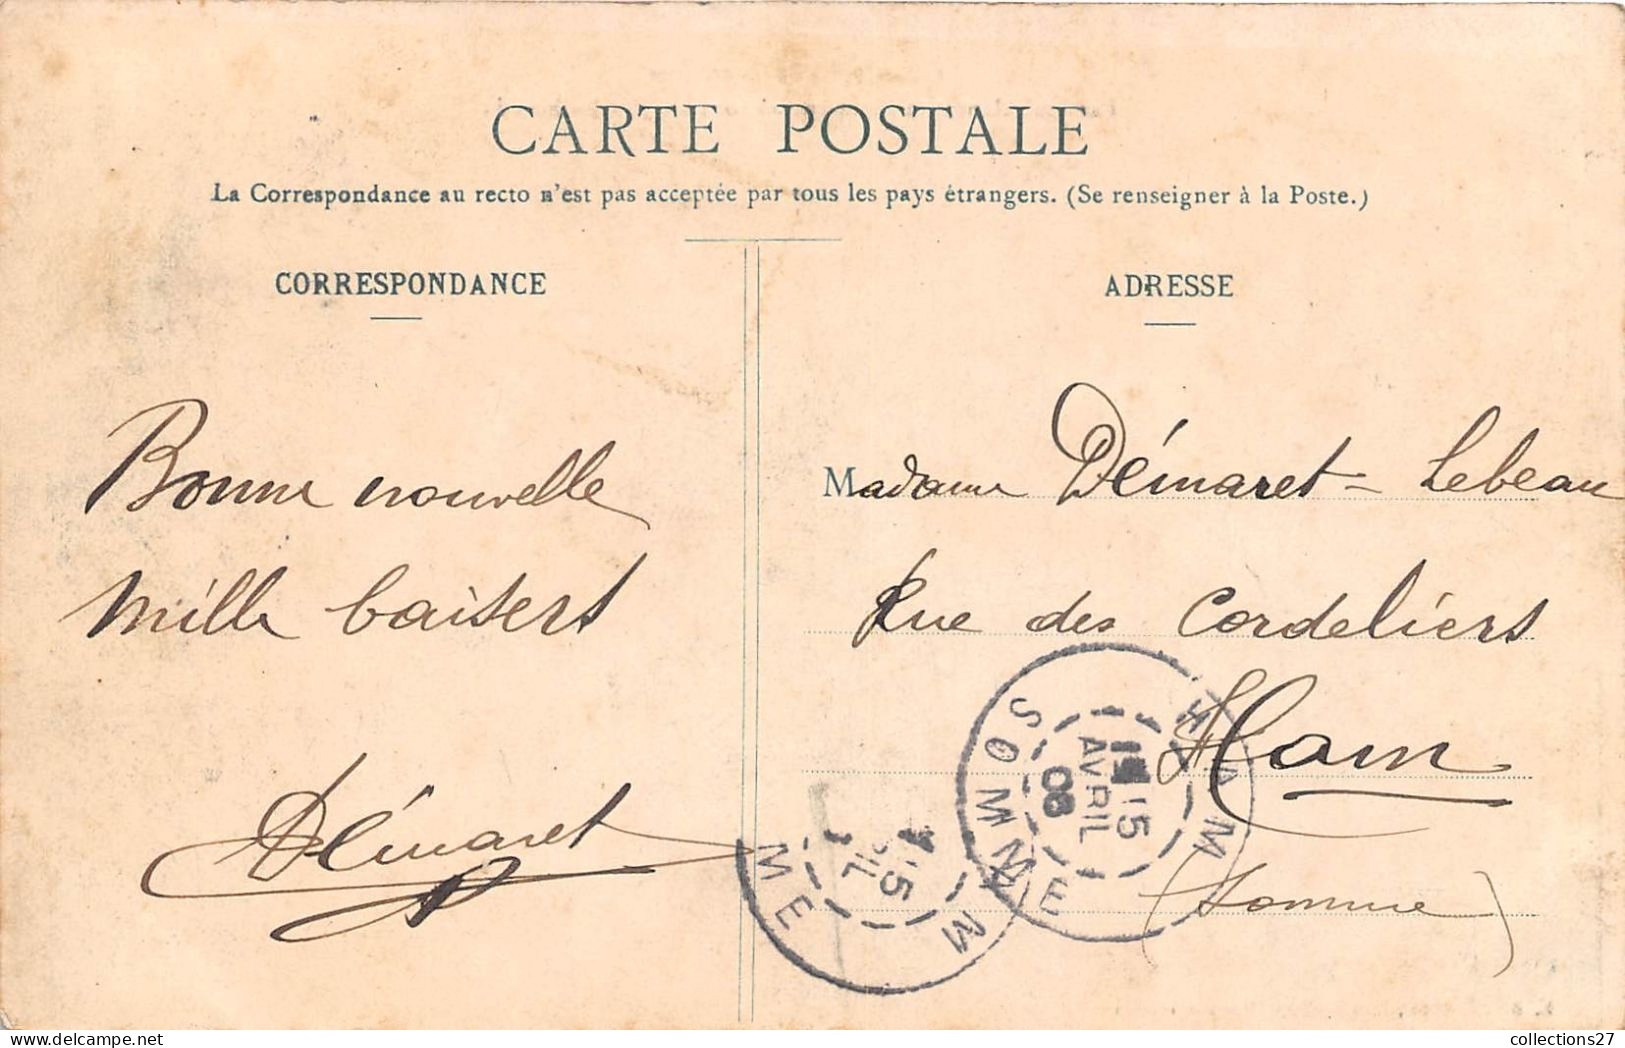 CARTE POSTALE
La Correspondance au recto n'est pas acceptée par tous les pays étrangers. (Se renseigner à la Poste.)
CORRESPONDANCE
Bonne nouvelle
Mille baisers
Démaret
ADRESSE
Madame Démaret-Lebeau
Rue des Cordeliers
Ham
(Somme)
HAM
SOMME
15
AVRIL
08
M
ME
15
IL
collections27